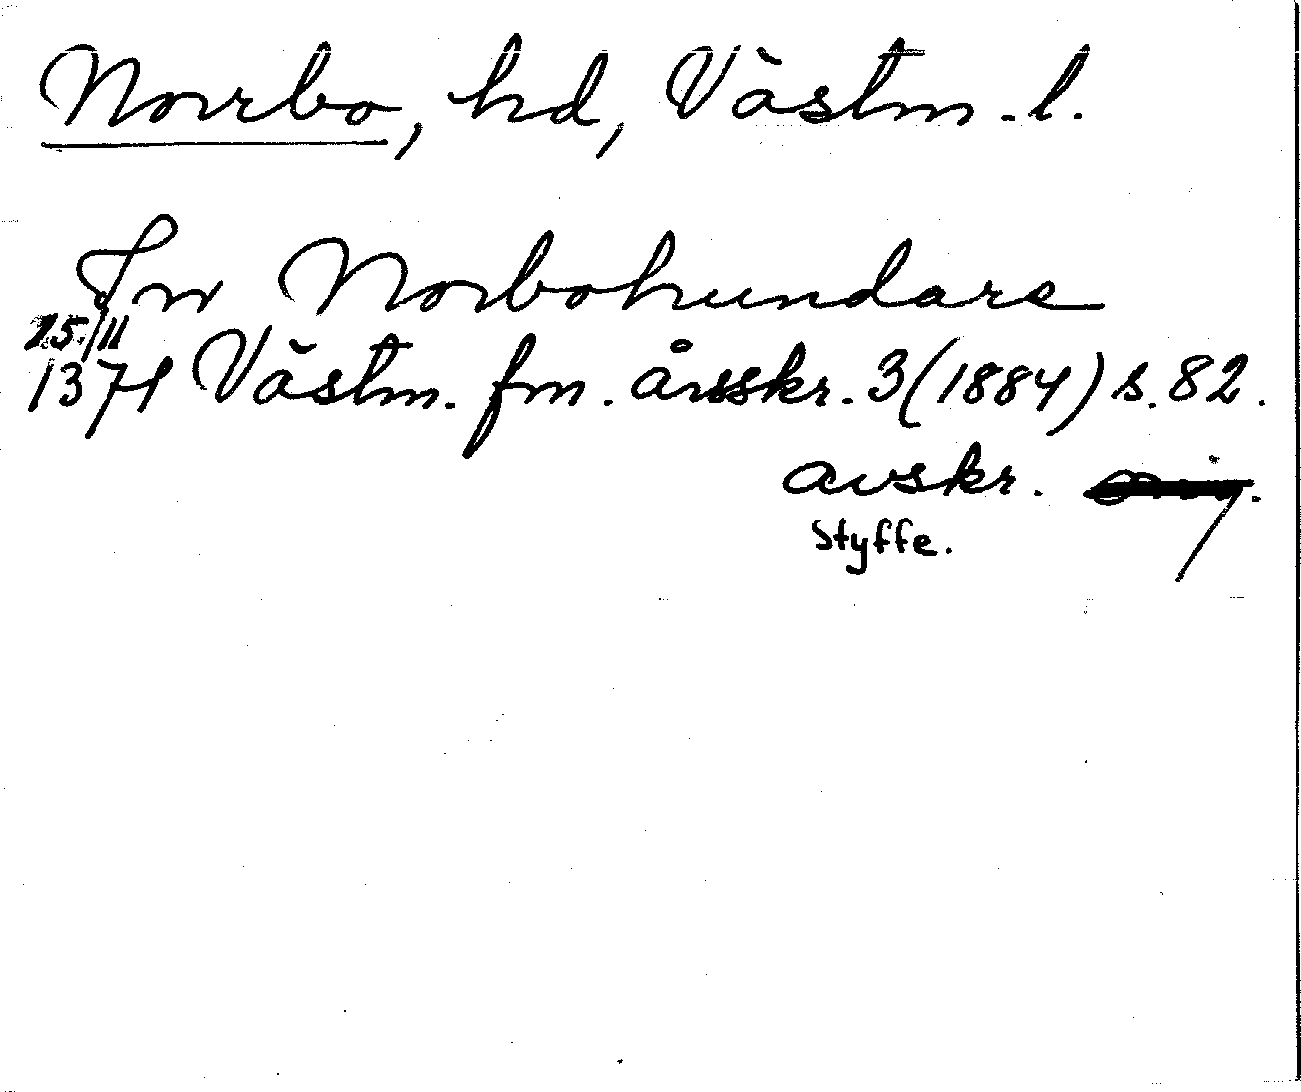 Norrbo, hd, Västm. l.
Jn Norbohundare
25/11
1371 Västm. fm. årsskr. 3 (1884) s. 82.
avskr.
Styffe.